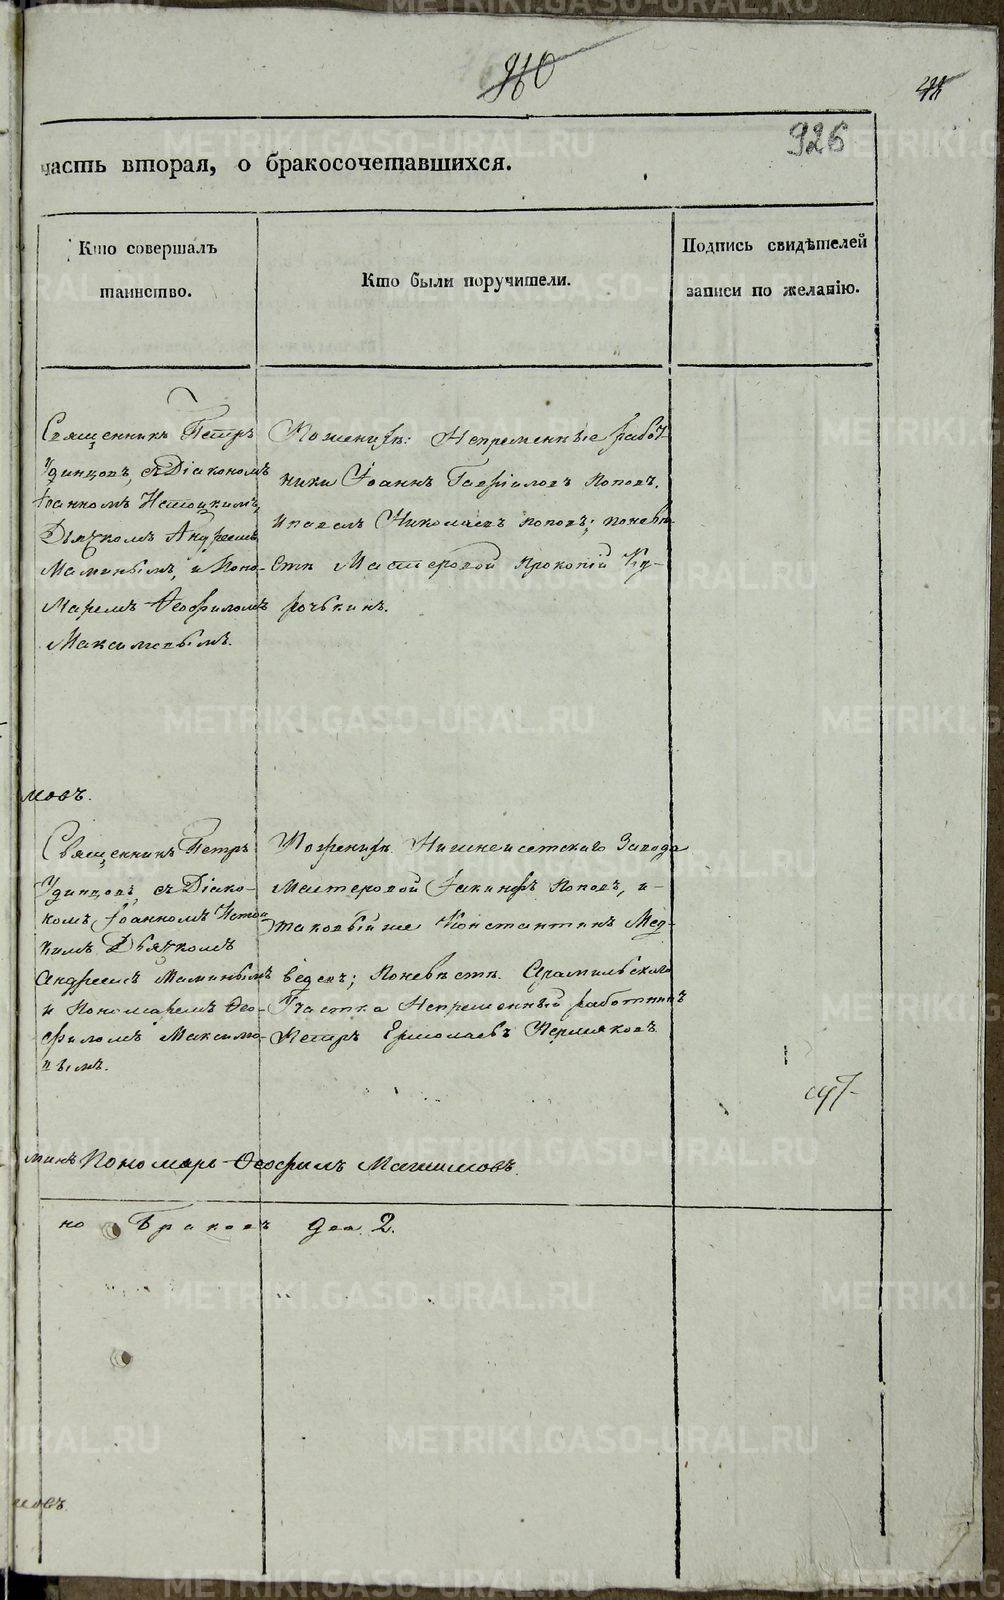 960
926
часть вторая, о бракосочетавшихся.
Кто совершалъ
таинство.
Кто были поручители.
Подпись свидѣтелей
записи по желанію.
Священникъ Петръ
Удинцовъ, съ Діакономъ
Іоанномъ Истоцкимъ,
Дьячкомъ Андреемъ
Маминымъ, и Поно-
маремъ Ѳеофиломъ
Максимовымъ.
По женихѣ: Непременные работ-
ники Іоаннъ Гавріиловъ Поповъ,
и Павелъ Николаевъ Поповъ; по невѣ-
стѣ Мастеровой Прокопій Ку-
рочькинъ.
мовъ.
Священникъ Петръ
Удинцовъ, съ Діако-
номъ, Іоанномъ Истоц-
кимъ Дьячкомъ
Андреемъ Маминымъ
и Пономаремъ Ѳео-
филомъ Максимо-
вымъ.
По женихѣ Нижнеисетскаго Завода
Мастеровой Іакинфъ Поповъ, и
таковый же Константинъ Мед-
ведевъ; По невѣстѣ Арамильскаго
Участка Непременный работникъ
Петръ Ермолаевъ Пермяковъ
минъ Пономарь Ѳеофилъ Максимовъ.
но Браковъ два 2.
мовъ.
METRIKI.GASO-URAL.RU